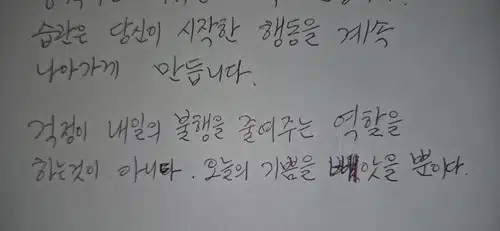 습관은 당신이 시작한 행동을 계속
나아가게 만듭니다.
걱정이 내일의 불행을 줄여주는 역할을
하는것이 아니다. 오늘의 기쁨을 빼앗을 뿐이다.